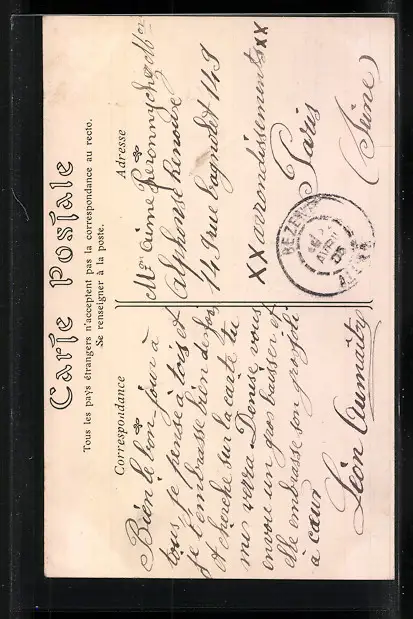 Carte Postale
Tous les pays étrangers n'acceptent pas la correspondance au recto.
Se renseigner à la poste.
Correspondance
Bien le bon jour à
tous je pense à tois et
je t'embrasse bien de foi
et cherche sur la carte tu
me verra Denise vous
envoie un gros baisser et
elle embrasse son
à cœur
Léon Aumaitre
Adresse
Mr aime
alphonse
149 rue bagnolet 149
XX arrondissements XX
Paris
(Seine)